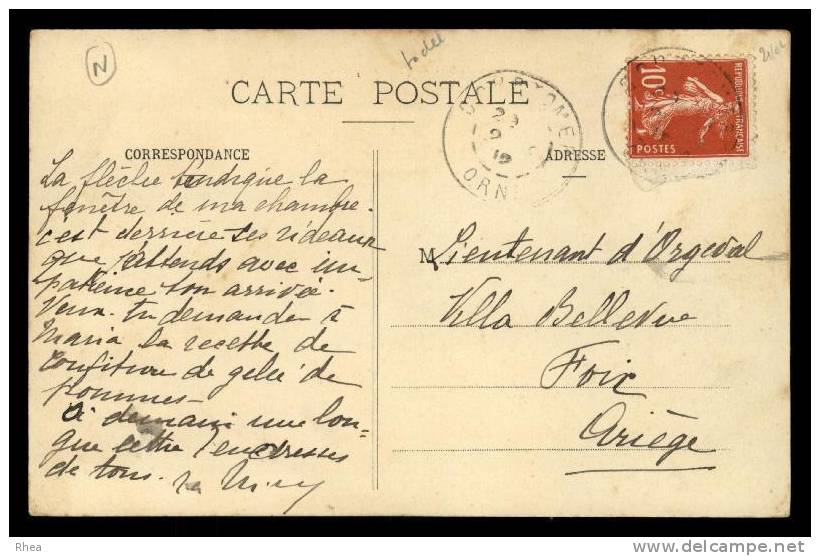 N
to del
CARTE POSTALE
10c
REPUBLIQUE FRANÇAISE
POSTES
ORN
CORRESPONDANCE
ADRESSE
La flèche indique la
fenêtre de ma chambre.
c'est derrière ses rideaux
que j'attends avec im-
patience ton arrivée.
Veux-tu demander à
Maria la recette de
confiture de gelée de
pommes-
à demain une lon-
gue lettre Tendresses
de tous.
M Lieutenant d'Orgeval
Villa Bellevue
Foix
Ariège
Rhea
www.delcampe.net